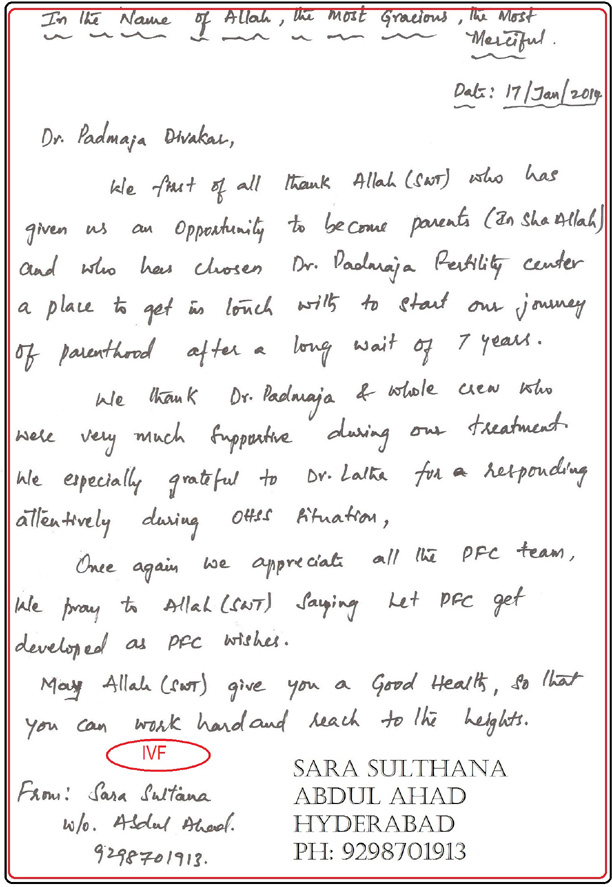 In the Name of Allah, the Most Gracious, the Most
Merciful.
Date: 17/Jan/2014
Dr. Padmaja Divakar,
We first of all thank Allah (SWT) who has
given us an Opportunity to become parents (In Sha Allah)
and who has chosen Dr. Padmaja Fertility center
a place to get in touch with to start our journey
of parenthood after a long wait of 7 years.
We thank Dr. Padmaja & whole crew who
were very much Supportive during our treatment
We especially grateful to Dr. Latha for a responding
attentively during OHSS Situation,
Once again we appreciate all the PFC team,
We pray to Allah (SWT) Saying Let PFC get
developed as PFC wishes.
May Allah (SWT) give you a Good Health, so that
you can work hard and reach to the heights.
IVF
From: Sara Sultana
W/o. Abdul Ahad.
9298701913.
SARA SULTHANA
ABDUL AHAD
HYDERABAD
PH: 9298701913